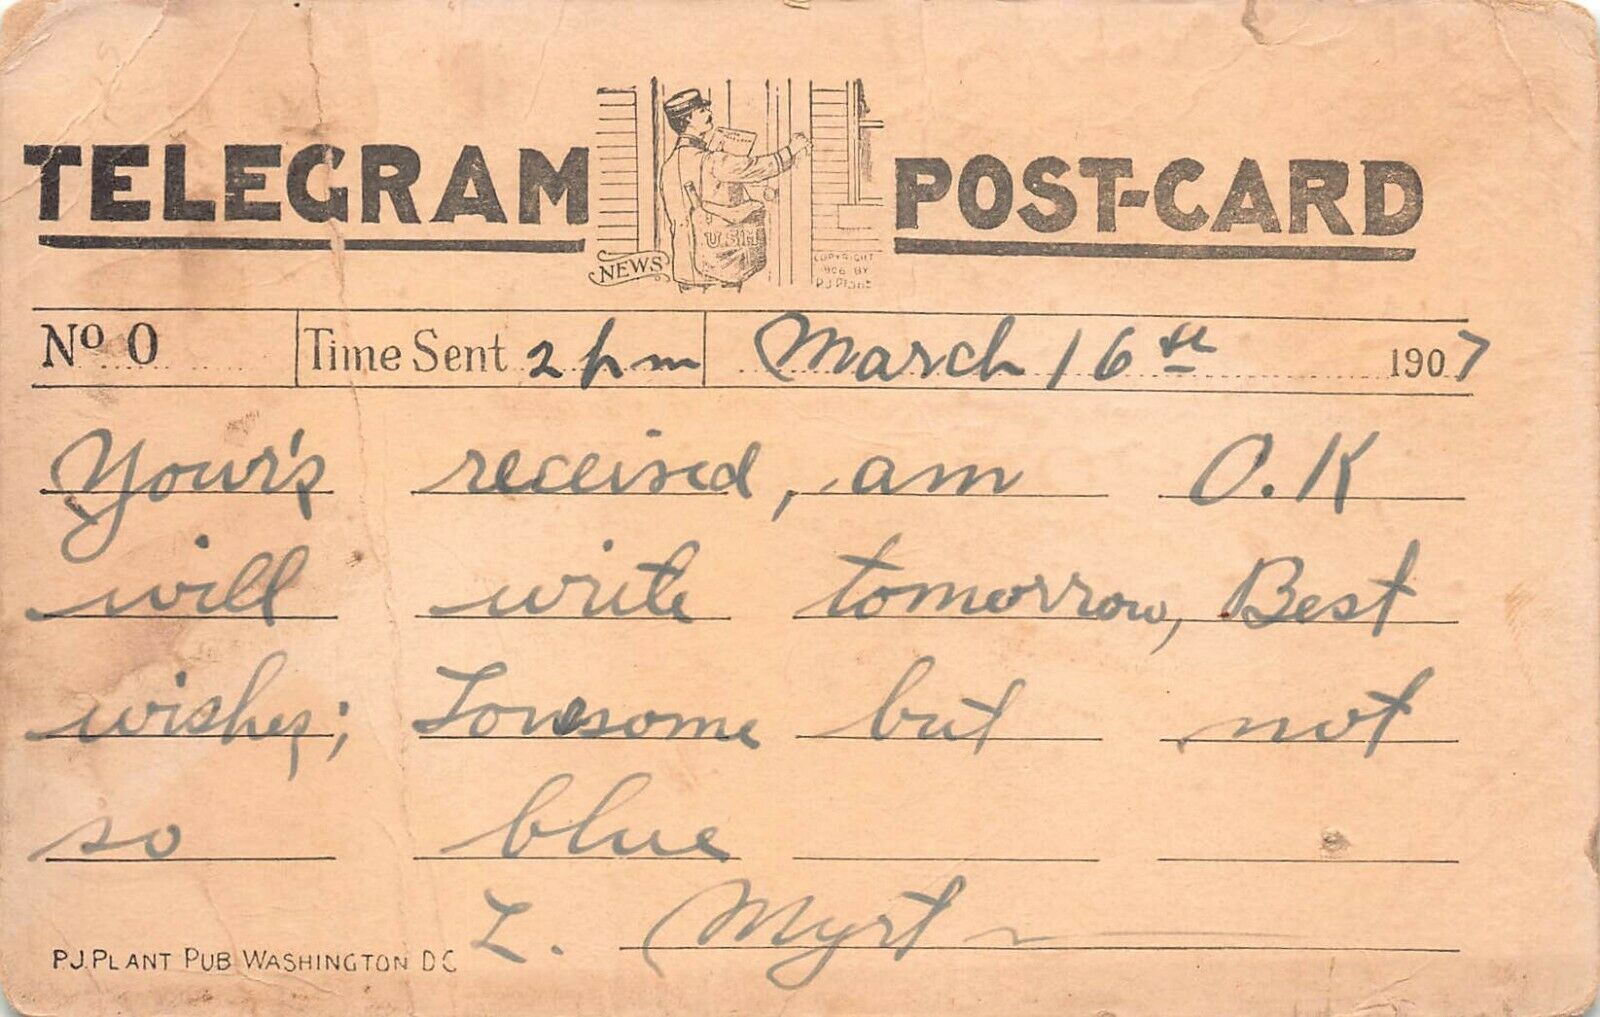 TELEGRAM POST-CARD
U.S.M
NEWS
COPYRIGHT
1906 BY
P.J.Plant
No 0 Time Sent 2 pm March 16th 1907
Your's received, am O.K
will write tomorrow, Best
wishes; Lonesome but not
so blue
L. Myrt
P.J.PLANT PUB WASHINGTON DC